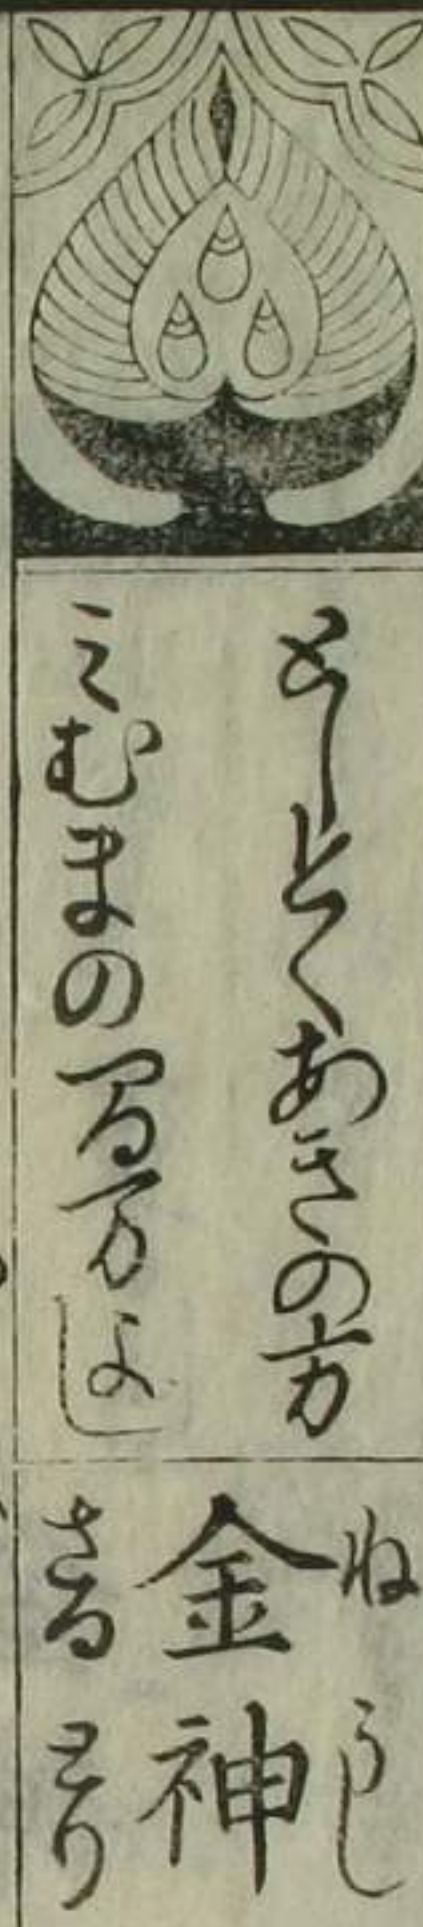 としとくあきの方
みむまの間万よし
ねうし
金神
さるとり